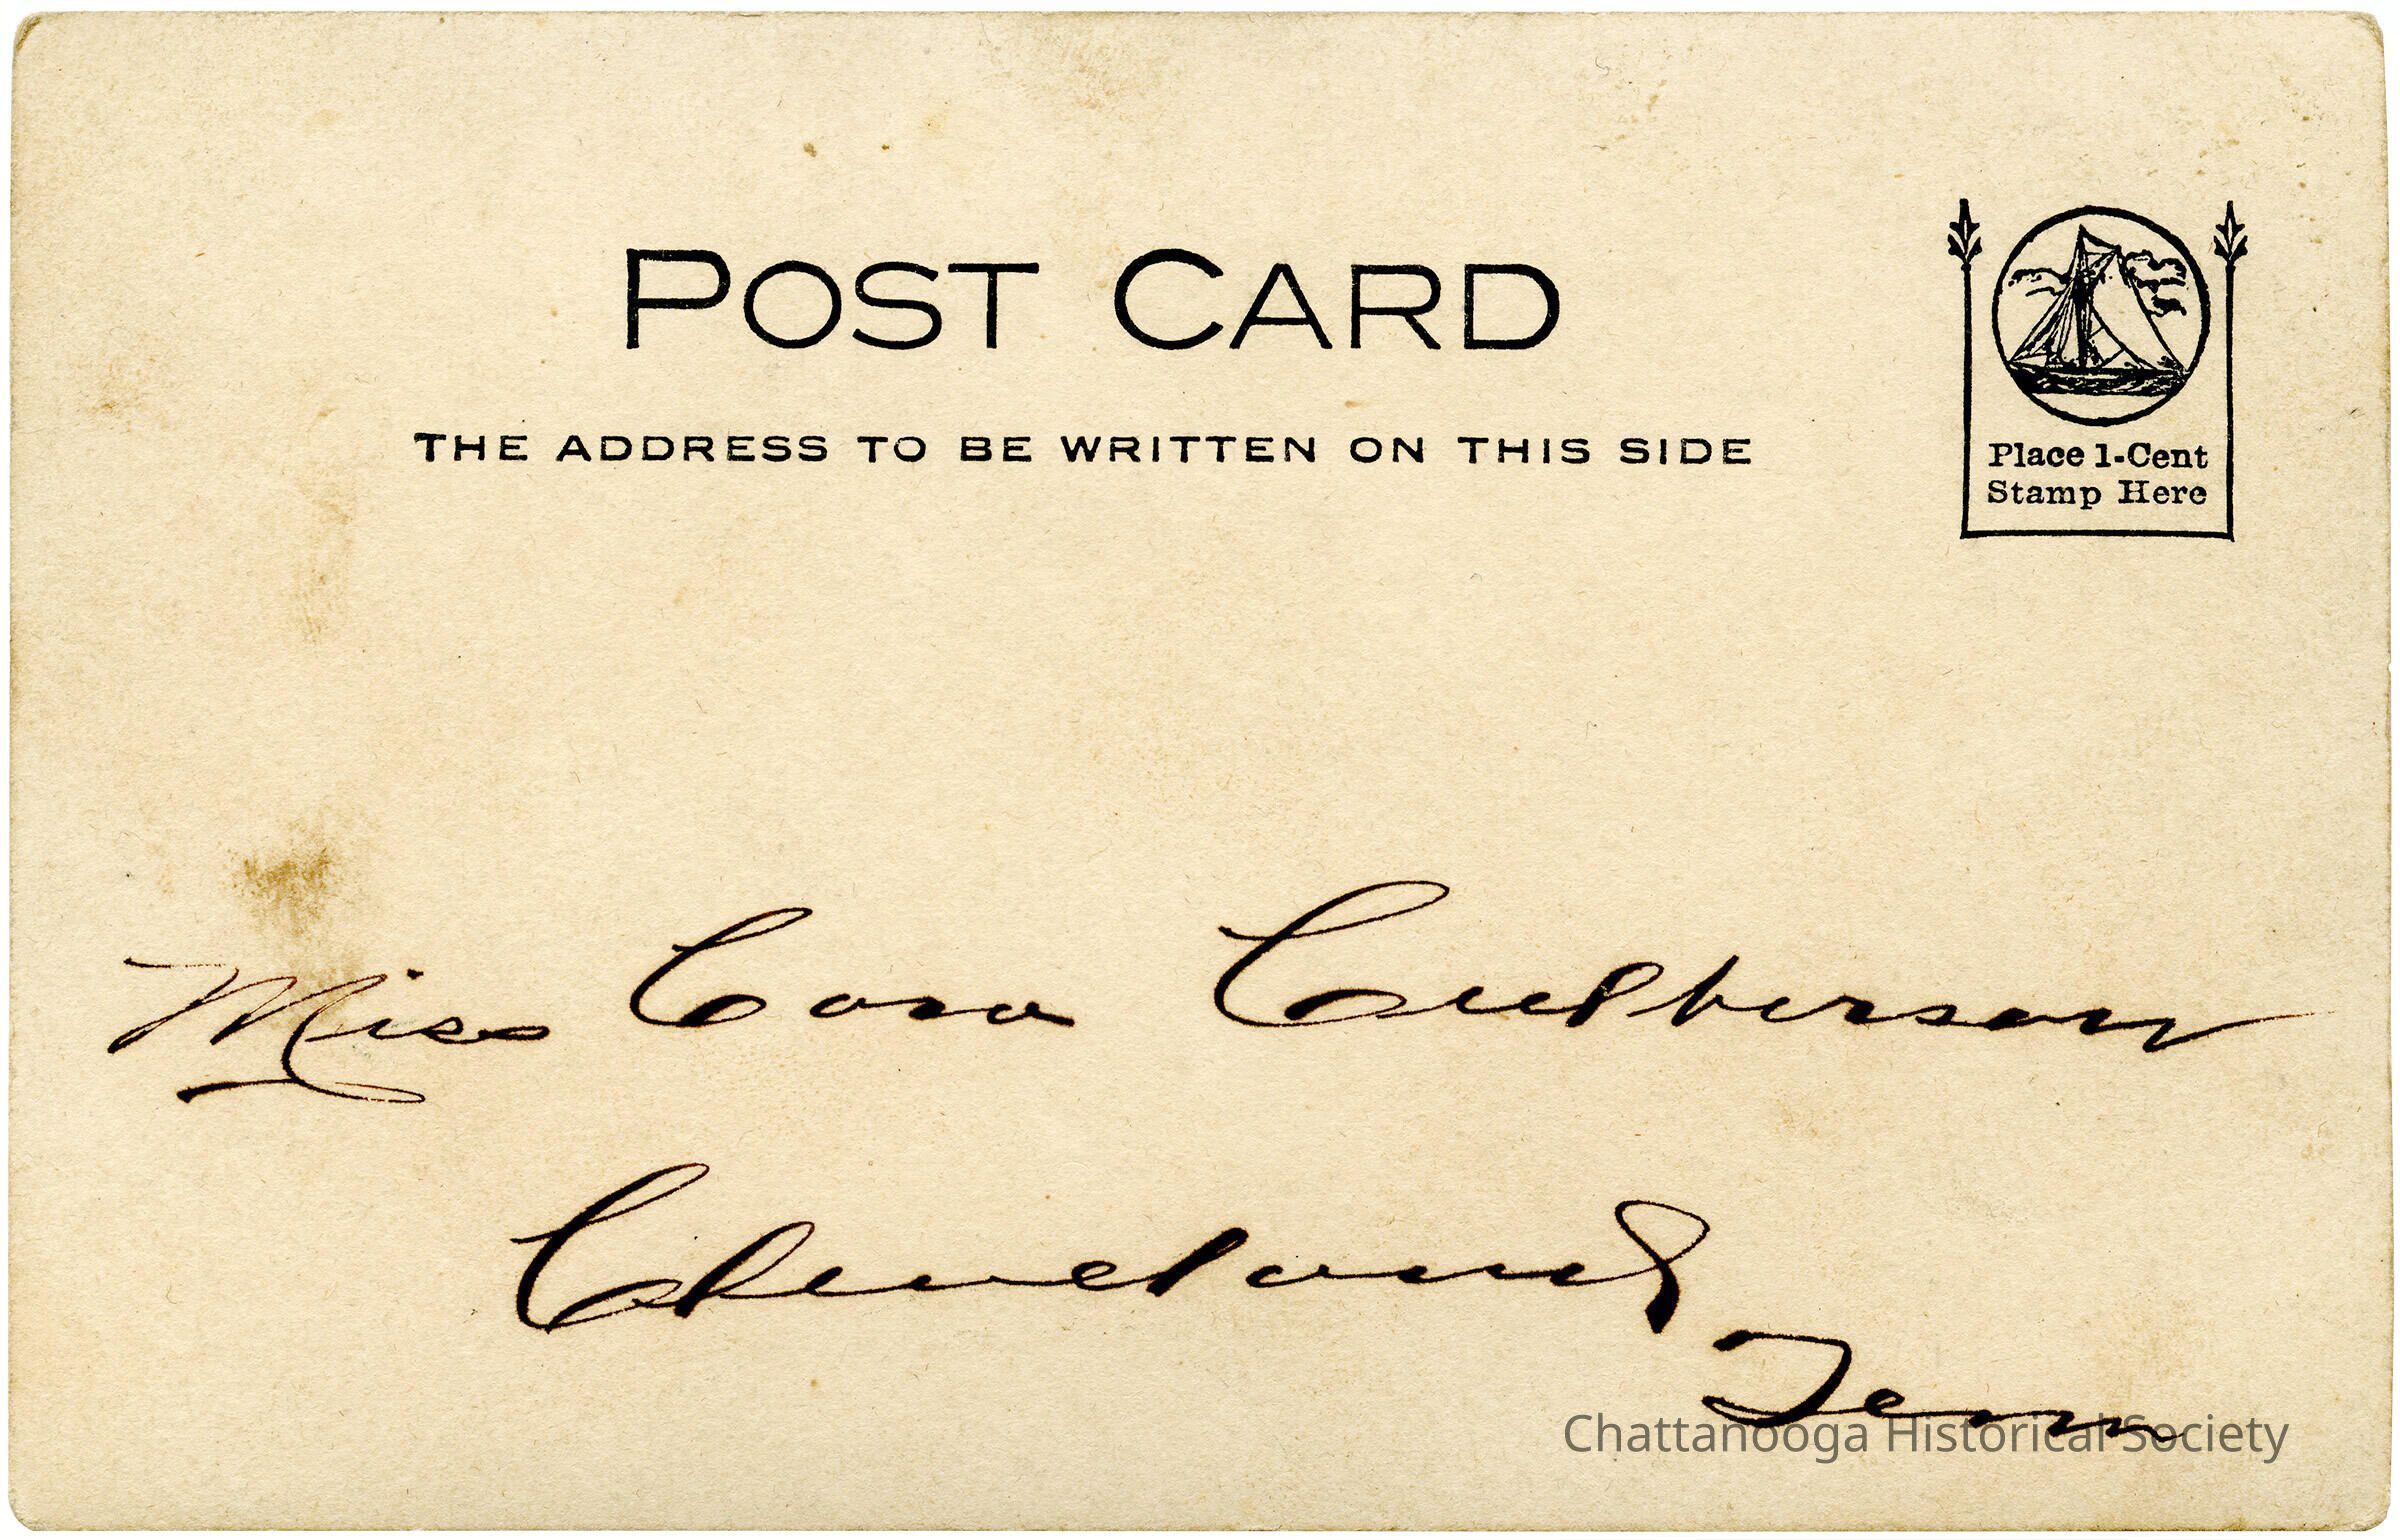 POST CARD
THE ADDRESS TO BE WRITTEN ON THIS SIDE
Place 1-Cent
Stamp Here
Miss Cora Culberson
Cleveland
Tenn
Chattanooga Historical Society